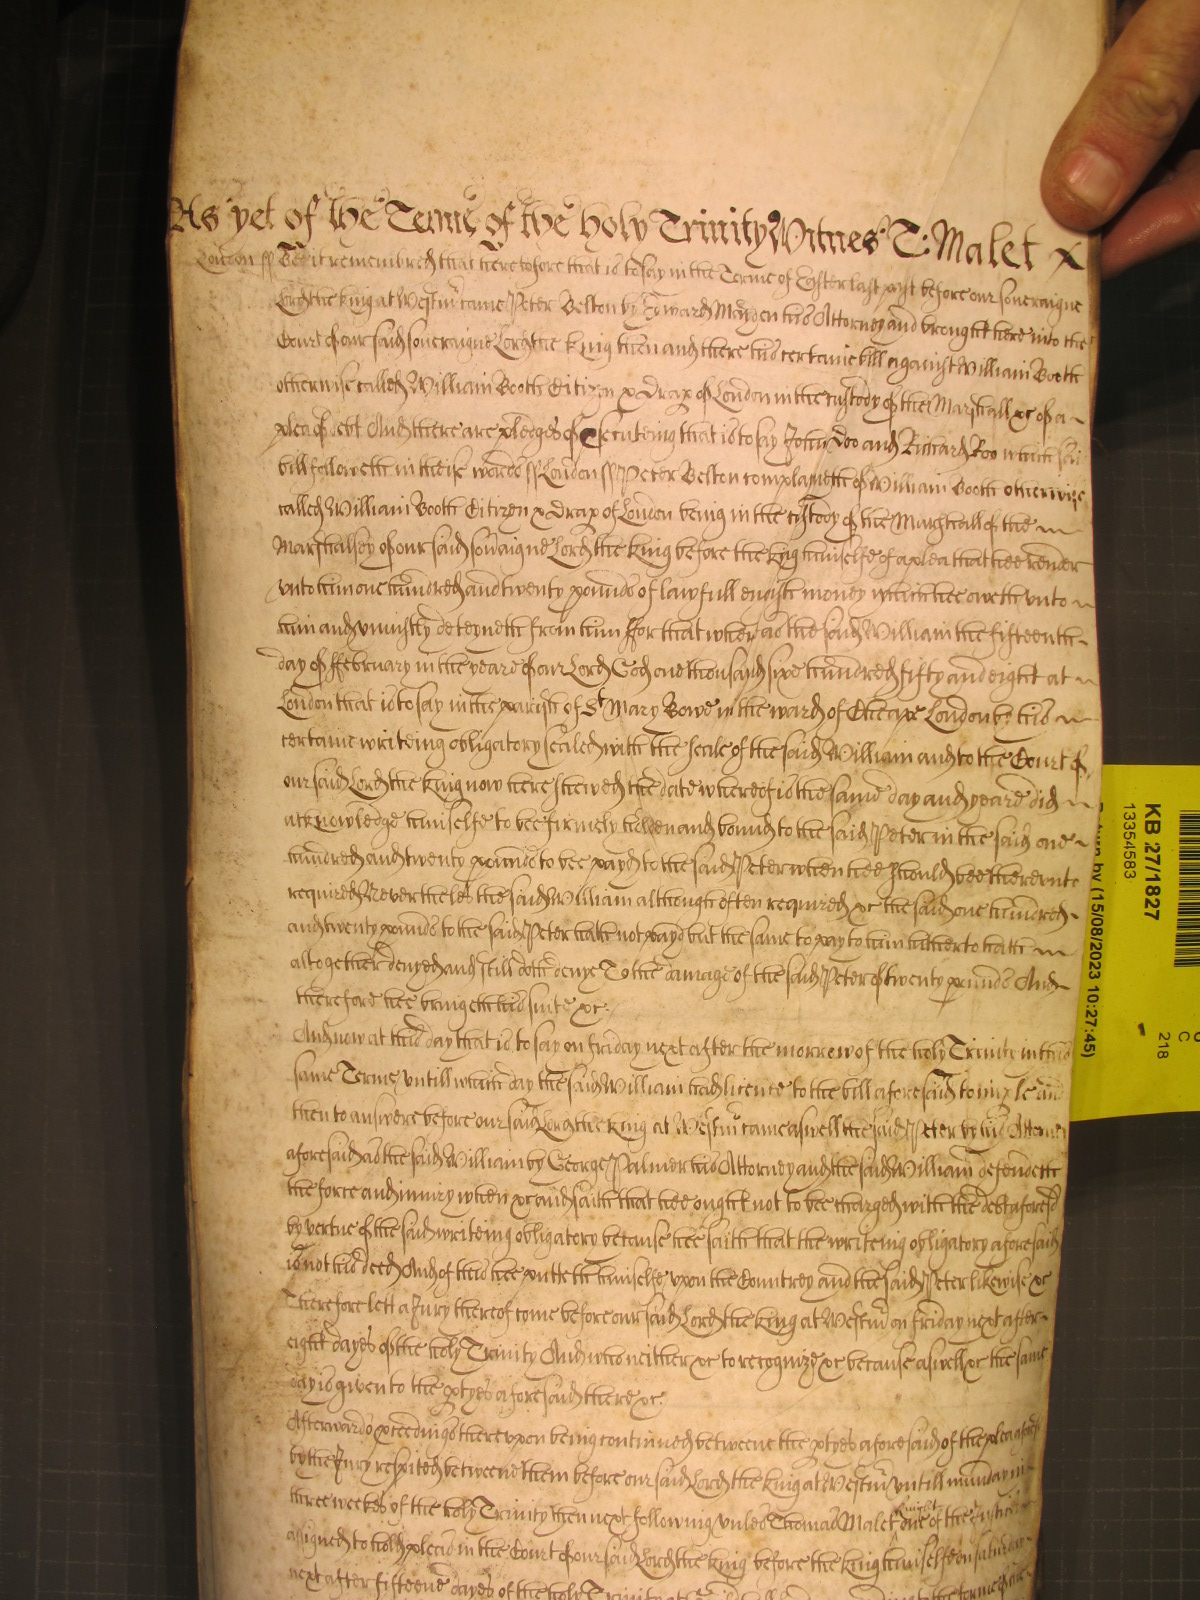 As yet of the Terme of the holy Trinity Witnes T: Malet X
London ss Bee it remembred that heretofore that is to say in the Terme of Easter last past before our soveraigne
Lord the King at Westm̃ came Peter Belton by Edward Marden his Attorney and brought here into the
Court of our said soveraigne Lord the King then and there his certaine bill against William Booth
otherwise called William Booth Citizen & Drap of London in the custody of the Marshall &c of a
plea of debt And there are pledges of ꝓsecuteing that is to say John Doo and Richard Roo which said
bill followeth in theise words ss London ss Peter Belton complayneth of William Booth otherwise
called William Booth Citizen & Drap of London being in the custody of the Marshall of the
Marshalsey of our said sovaigne Lord the King before the King himselfe of a plea that hee render
unto him one hundred and twenty pounds of lawfull english money which hee oweth unto
him and uniustly deteyneth from him ffor that whereas the said William the fifteenth
day of ffebruary in the yeare of our Lord God one thousand six hundred fifty and eight at
London that is to say in the parish of St Mary Bowe in the ward of Cheape London by his
certaine writeing obligatory sealed with the seale of the said William and to the Court of
our said Lord the King now here shewed the date whereof is the same day and yeare did
acknowledge himselfe to bee firmely holden and bound to the said Peter in the said one
hundred and twenty pounds to bee payd to the said Peter when hee should bee thereunto
required Neverthelesse the said William although often required &c the said one hundred
and twenty pounds to the said Peter hath not payd but the same to pay to him hitherto hath
altogether denyed and still doth denye To the damage of the said Peter of twenty pounds And
therefore hee bringeth his suite &c.
And now at this day that is to say on friday next after the morrow of the holy Trinity in this
same Terme untill which day the said William had licence to the bill aforesaid to imparle and
then to answere before our said Lord the King at Westm̃ came aswell the said Peter by his Attorney
aforesaid as the said William by George Palmer his Attorney and the said William defendeth
the force and iniury when &c and saith that hee ought not to bee charged with the debt aforesd
by vertue of the said writeing obligatory because hee saith that the writeing obligatory aforesaid
is not his deed And of this hee putteth himselfe upon the Countrey and the said Peter likewise &c
Therefore lett a Jury thereof come before our said Lord the King at Westm̃ on friday next after
eight dayes of the holy Trinity And who neither &c to recognize &c because aswell &c the same
day is given to the ptyes aforesaid there &c.
Afterwards ꝓceedings thereupon being continued betweene the ptyes aforesaid of the plea aforesd
by the Jury respited betweene them before our said Lord the King at Westm̃ untill munday in
three weekes of the holy Trinity then next following unles Thomas Malet knight one of the Justices
assigned to hold pleas in the Court of our said Lord the King before the King himselfe on saturday
next after fifteene dayes of the holy Trinity at
KB 27/1827
13354583
by (15/08/2023 10:27:45)
218
C